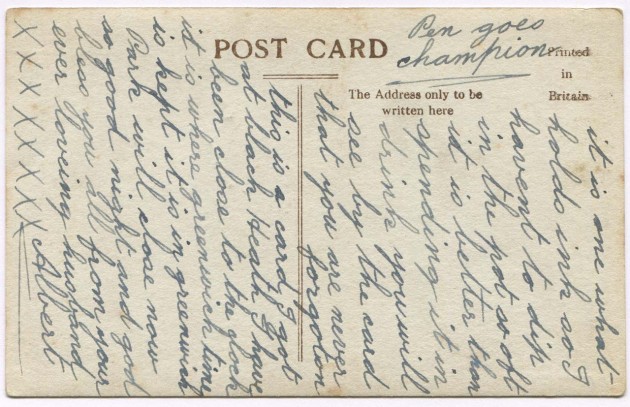 POST CARD
Printed
in
Britain
The Address only to be
written here
Pen goes
champion
it is one what
holds ink so I
havent to dip
in the pot soft
it is better than
spending it in
drink you will
see by the card
that you are never
forgoton
this is a card I got
at black Heath I have
been close to the clock
it is where greenwich time
is kept it is in greenwich
Park will close now
so good night and god
bless you all from your
ever loveing husband
Albert
X X X X X X X